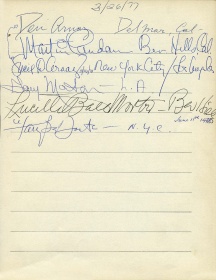 3/20/77
Desi Arnaz Del Mar Cal-
Martin Landau Bev Hills Cal
New York City / Los Angeles
Gary Morton L.A
Lucille Ball Morton - Bev Hills
N.Y.C.